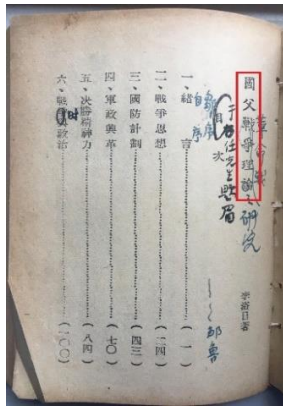 國父戰爭理論之研究
崇濟日著
于右任先生題眉
目次
自序
一、緒言(一)
二、戰爭思想(二四)
三、國防計劃(四三)
四、軍政興革(七〇)
五、決勝精神力(八四)
六、戰時政治(一〇〇)